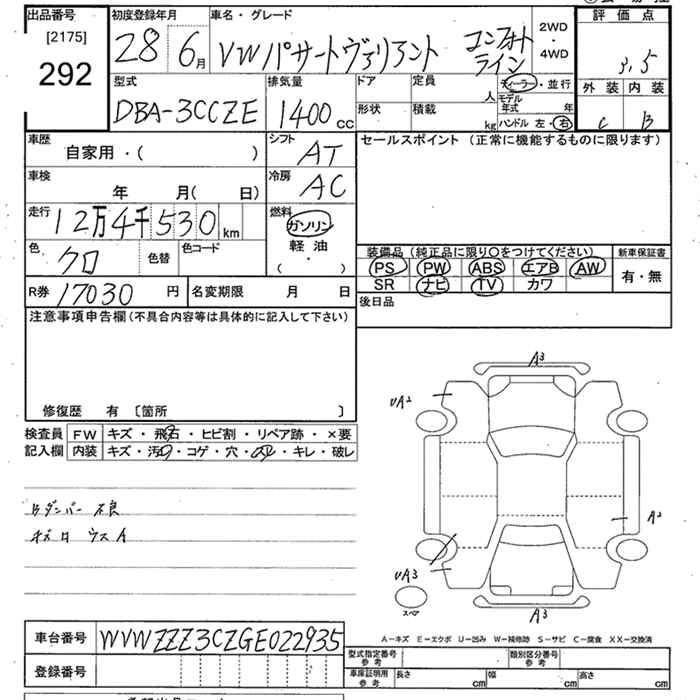 出品番号
[2175]
292
初度登録年月
28 6月
車名・グレード
VWパサートヴァリアント コンフォートライン
2WD
・
4WD
評価点
3.5
外装 内装
C B
型式
DBA-3CCZE
排気量
1400cc
ドア
定員
人
形状
積載
kg
ディーラー・並行
モデル年式 年
ハンドル 左・右
車歴
自家用・( )
シフト
AT
車検
年 月( 日)
冷房
AC
走行
12万4千530km
燃料
ガソリン
軽油
( ・ )
色
クロ
色替
色コード
R券 17030 円
名変期限 月 日
セールスポイント (正常に機能するものに限ります)
装備品 (純正品に限り○をつけてください)
新車保証書
PS PW ABS エアB AW
SR ナビ TV カワ
有・無
後日品
注意事項申告欄(不具合内容等は具体的に記入して下さい)
修復歴 有 〔箇所 〕
検査員記入欄
FW キズ・飛石・ヒビ割・リペア跡・×要
内装 キズ・汚れ・コゲ・穴・スレ・キレ・破レ
Bダンパー不良
A3
UA2
A2
UA3
スペア
A3
A-キズ E-エクボ U-凹み W-補修跡 S-サビ C-腐食 XX-交換済
車台番号 WVWZZZ3CZGE022935
登録番号
型式指定番号 参考
類別区分番号 参考
車庫証明用 参考
長さ cm
幅 cm
高さ cm